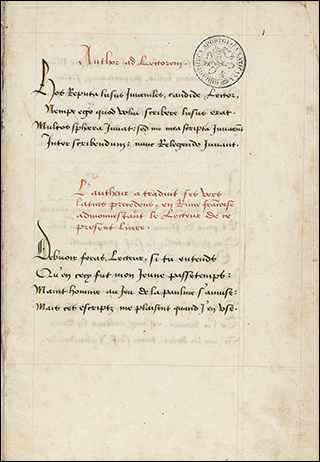 Author ad Lectorem.
Hos Reputa lusus Iuveniles, candide Lector,
Nempe ego quod volui scribere lusus erat.
Multos sphera Iuvat: sed me mea scripta Iuvarunt
Inter scribendum: nunc Relegendo Iuvant.
L'autheur a traduit ses vers
latins precedens, en Rime francoise
admonnestant le Lecteur de ce
present Livre.
Debvoir feras, Lecteur, si tu entends
Qu'en cecy fut mon Jeune passetemps:
Maint homme au Jeu de la paulme s'amuse:
Mais ces escriptz me plaisent quand J'en use.
BIBLIOTHECA APOSTOLICA VATICANA